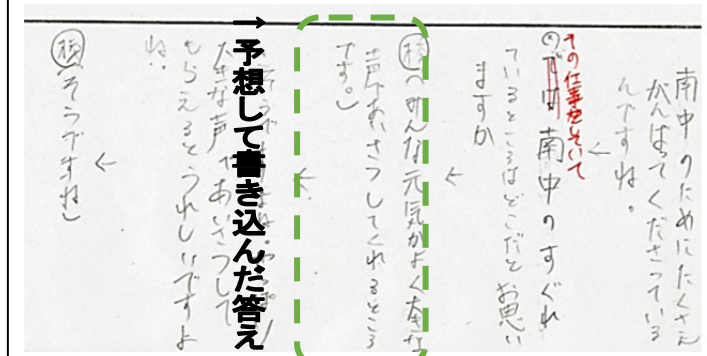 南中のためにたくさん
がんばってくださっている
んですね。
←
その仕事をしていて
南中のすぐれ
ているところはどこだと お思い
ますか
←
校へみんな元気がよく大きな
声であいさつしてくれるところ
です。」
←
→予想して書き込んだ答え
大きな声であいさつして
もらえるとうれしいですよ
ね。
←
校へそうですね」